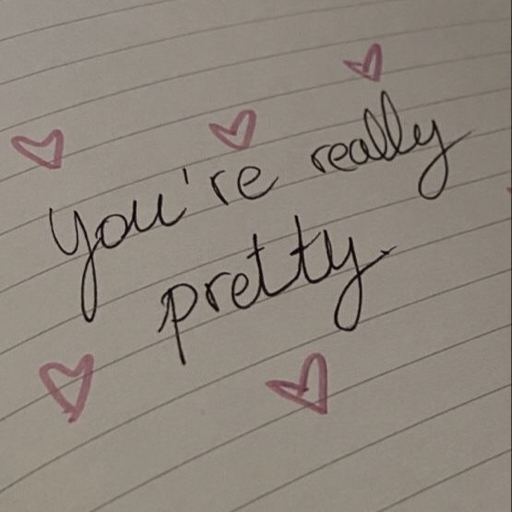 You're really
pretty.